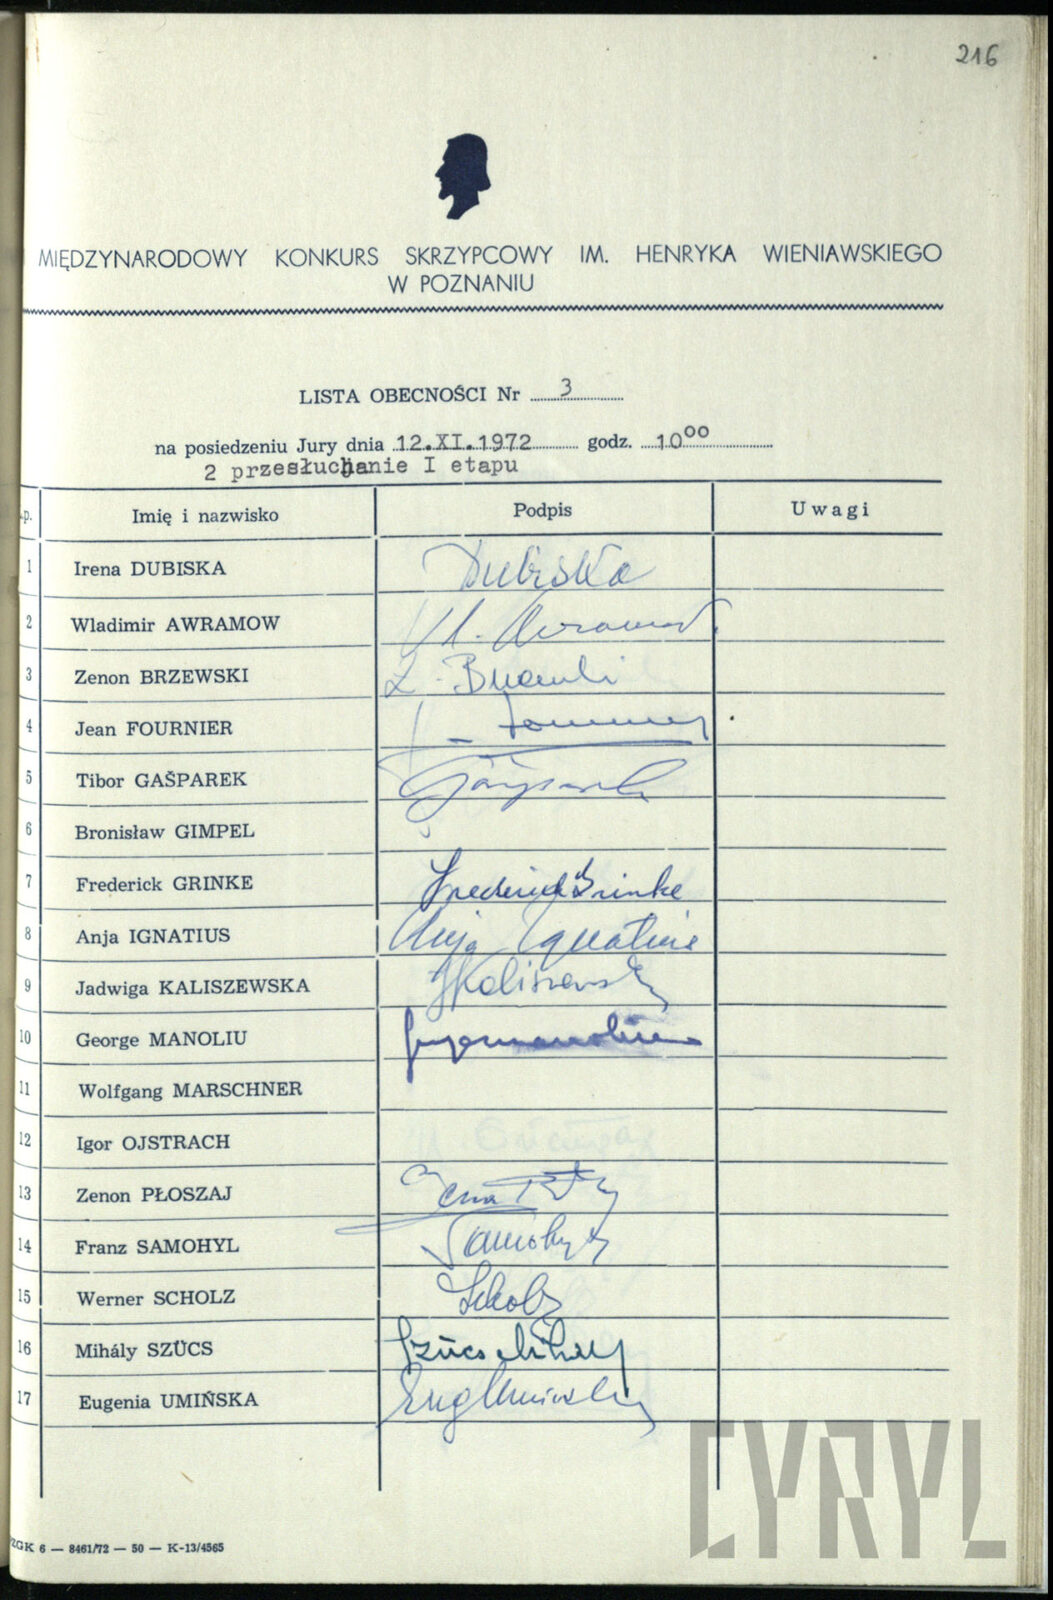 216
MIĘDZYNARODOWY KONKURS SKRZYPCOWY IM. HENRYKA WIENIAWSKIEGO
W POZNANIU
LISTA OBECNOŚCI Nr 3
na posiedzeniu Jury dnia 12.XI.1972 godz. 10⁰⁰
2 przesłuchanie I etapu
.p. Imię i nazwisko Podpis Uwagi
1 Irena DUBISKA Dubiska
2 Wladimir AWRAMOW
3 Zenon BRZEWSKI
4 Jean FOURNIER
5 Tibor GAŠPAREK
6 Bronisław GIMPEL
7 Frederick GRINKE Frederick Grinke
8 Anja IGNATIUS Anja Ignatius
9 Jadwiga KALISZEWSKA JKaliszewska
10 George MANOLIU
11 Wolfgang MARSCHNER
12 Igor OJSTRACH
13 Zenon PŁOSZAJ
14 Franz SAMOHYL Samohyl
15 Werner SCHOLZ Scholz
16 Mihály SZÜCS Szücs Mihály
17 Eugenia UMIŃSKA EugUmińska
ZGK 6 — 8461/72 — 50 — K-13/4565
CYRYL